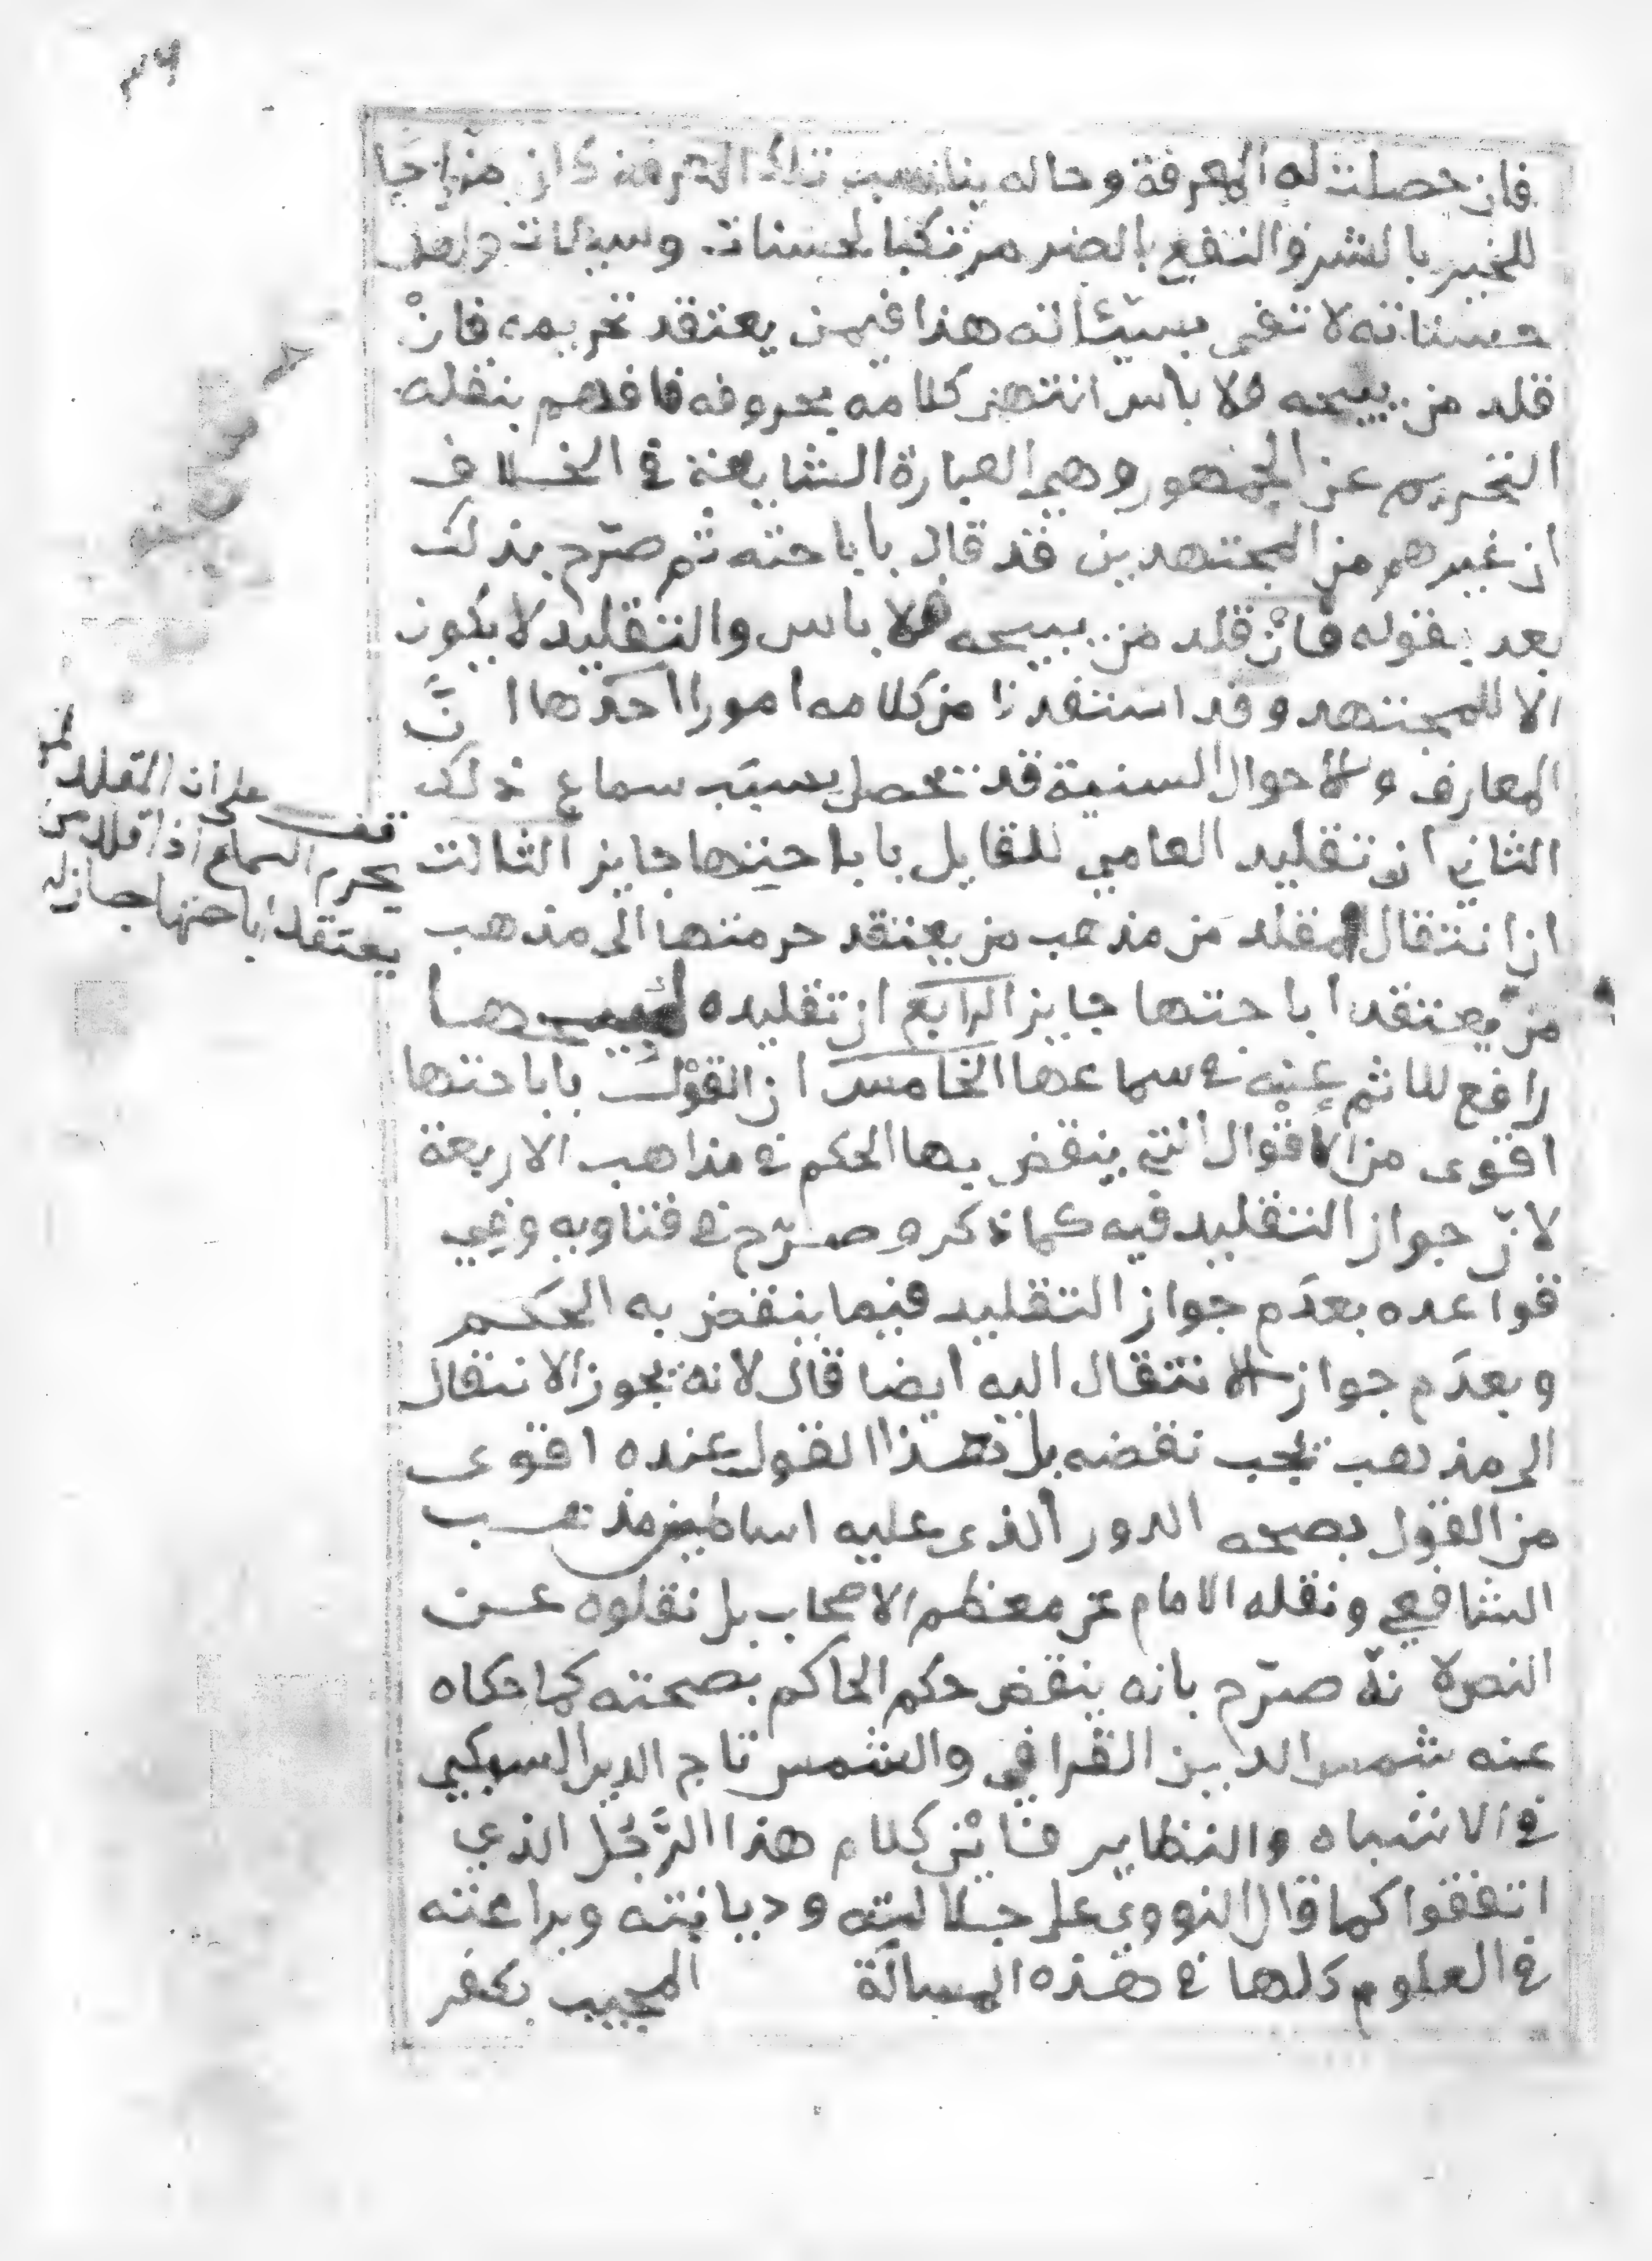 ٣٦
فان حصلت له المعرفة وحاله يناسب تلك المعرفة كان مزاجا
للخير بالشر والنفع بالضر مرتكبا لحسنات وسيئات ولعل
حسناته لا تفى بسيئاته هذا فيمن يعتقد تحريمه فانْ
قلد من يبيحه فلا باس انتهى كلامه بحروفه فافهم بنقله
التحريم عن الجمهور وهى العبارة الشايعة في الخلاف
ان غيرهم من المجتهدين قد قال باباحته ثم صرّح بذلك
بعد بقوله فانْ قلد من يبيحه فلا باس والتقليد لا يكون
الا للمجتهد وقد استفدنا من كلامه امورا احدها انَّ
المعارف والاحوال السنية قد تحصل بسبب سماع ذلك
الثاني ان تقليد العامي للقايل باباحتها جايز الثالث
ان انتقال المقلد من مذهب من يعتقد حرمتها الى مذهب
منْ يعتقد اباحتها جايز الرابع ان تقليده لمبيحها
رافع للاثم عنه في سماعها الخامس ان القوْل باباحتها
اقوى من الاقوال التي ينقض بها الحكم في مذاهب الاربعة
لانّ جواز التقليد فيه كما ذكر وصرّح في فتاويه وفي
قواعده بعدَم جواز التقليد فيما ينقض به الحكم
وبعدَم جواز الانتقال اليه ايضا قال لانه يجوز الانتقال
الى مذهب يجب نقضه بل هذا القول عنده اقوى
من القول بصحه الدور الذى عليه اساطين مذهب
الشافعي ونقله الامام عن معظم الاصحاب بل نقلوه عن
النص لانهّ صرّح بانه ينقض حكم الحاكم بصحته كما حكاه
عنه شمس الدين القرافي والشمس تاج الدين السبكي
في الاشباه والنظاير فايْن كلام هذا الرَّجُل الذي
اتفقوا كما قال النووي على جلالته وديانته وبراعته
في العلوم كلها في هذه المسالة المجيب بكفر
قف على ان المقلد لمن
يحرم السماع اذا قلد من
يعتقد اباحتها جاز له